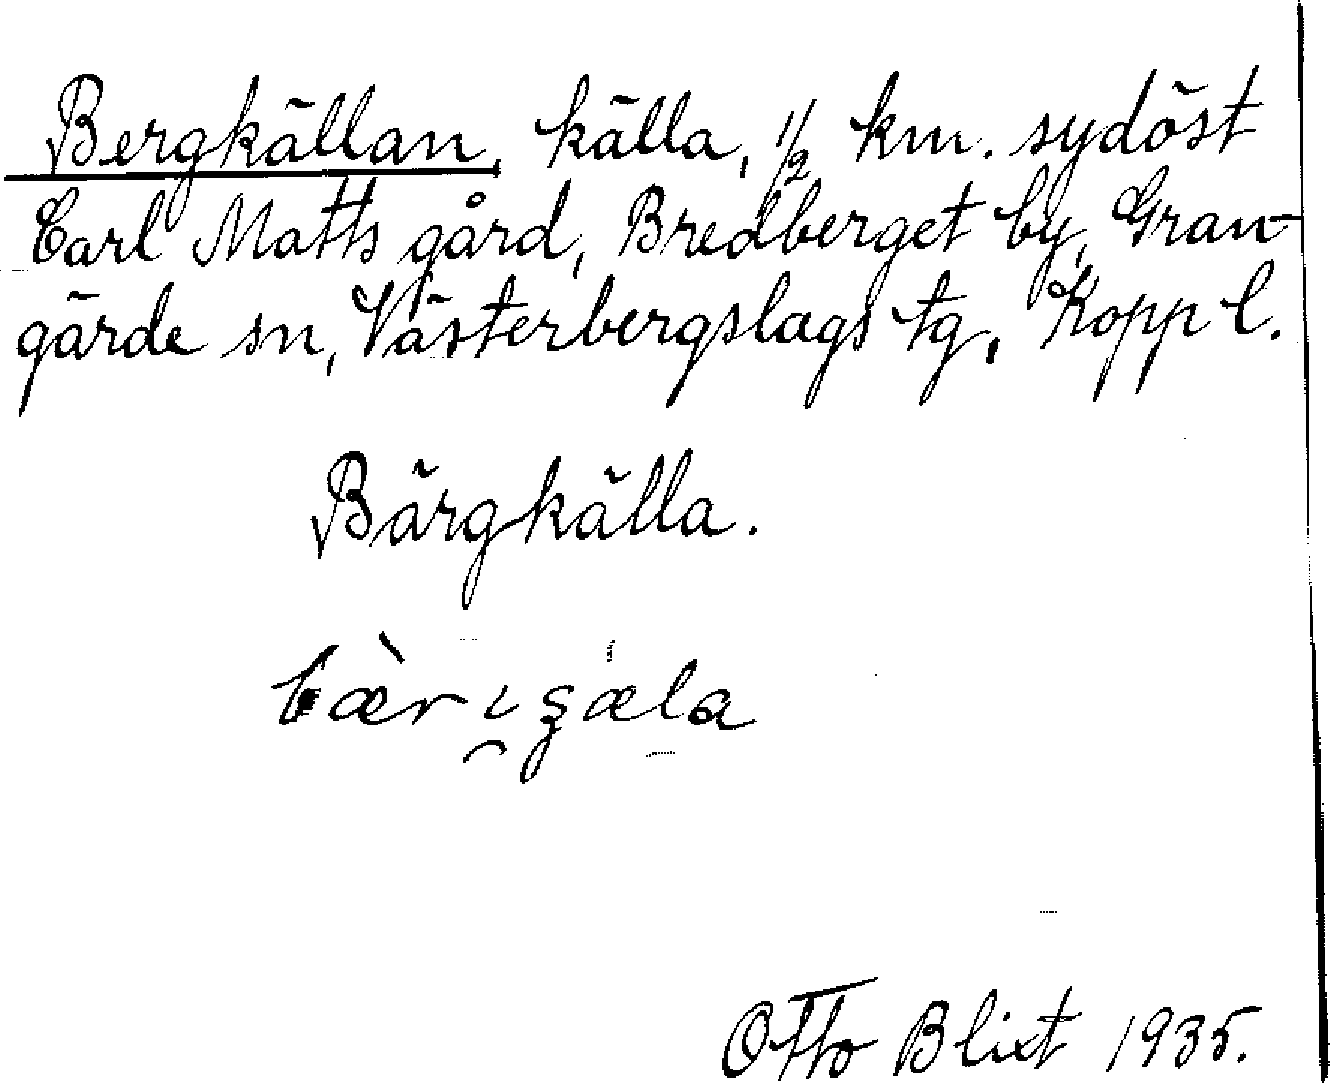 Bergkällan, källa, 1/2 km. sydöst
Carl Matts gård, Bredberget by, Gran-
gärde sn, Västerbergslags tg, Kopp l.
Bärgkälla.
Otto Blixt 1935.